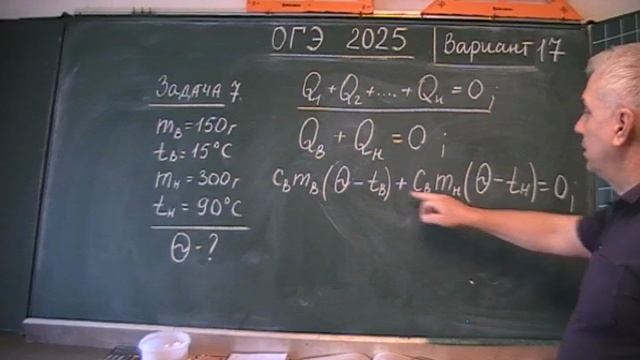 ОГЭ 2025
Вариант 17
Задача 7.
mв = 150г
tв = 15°C
mн = 300г
tн = 90°C
Θ - ?
Q₁ + Q₂ + .... + Qн = 0;
Qв + Qн = 0;
cвmв(Θ - tв) + cвmн(Θ - tн) = 0;